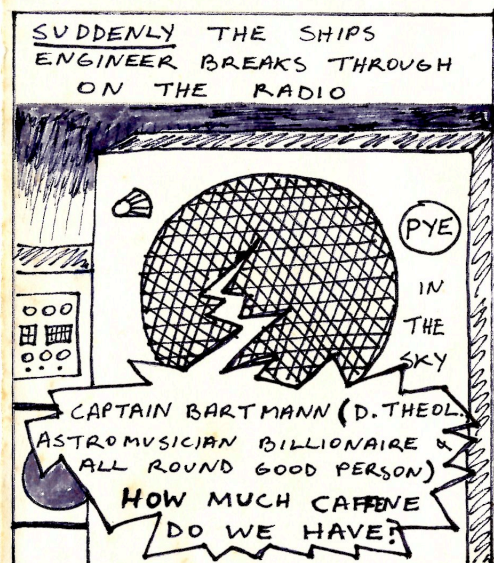 SUDDENLY THE SHIPS
ENGINEER BREAKS THROUGH
ON THE RADIO
PYE
IN
THE
SKY
CAPTAIN BARTMANN (D. THEOL.
ASTROMUSICIAN BILLIONAIRE &
ALL ROUND GOOD PERSON)
HOW MUCH CAFFENE
DO WE HAVE?